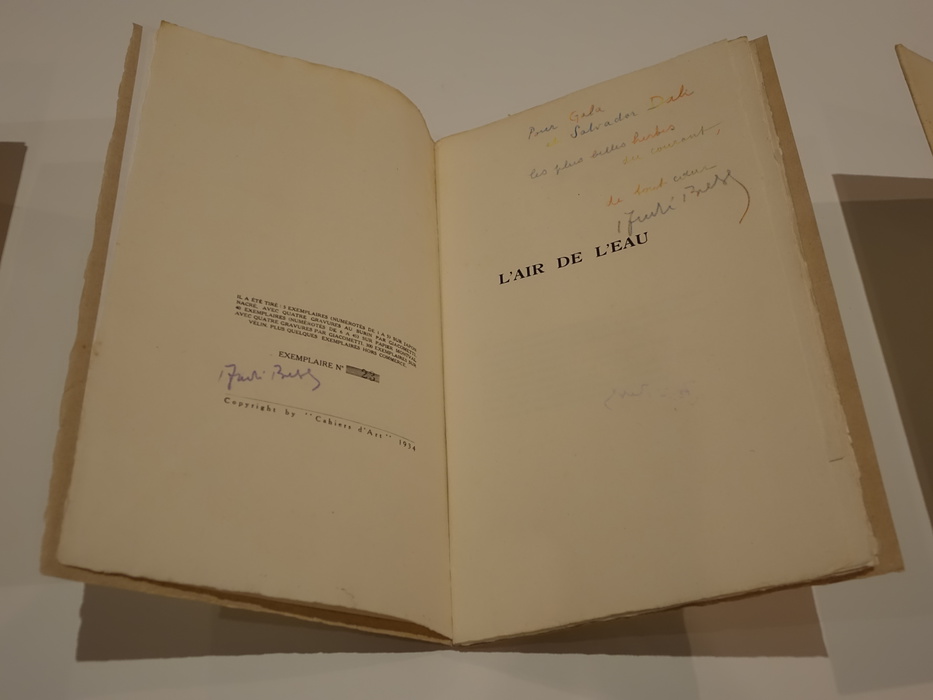 IL A ÉTÉ TIRÉ : 5 EXEMPLAIRES (NUMÉROTÉS DE 1 A 5) SUR JAPON
NACRÉ, AVEC QUATRE GRAVURES AU BURIN PAR GIACOMETTI,
40 EXEMPLAIRES (NUMÉROTÉS DE 6 A 45) SUR PAPIER MONTVAL
AVEC QUATRE GRAVURES PAR GIACOMETTI, 300 EXEMPLAIRES SUR
VÉLIN, PLUS QUELQUES EXEMPLAIRES HORS COMMERCE.
EXEMPLAIRE N°
André Breton
Copyright by "Cahiers d'Art" 1934
Pour Gala
et Salvador Dali
les plus belles herbes
du courant,
de tout cœur
André Breton
L'AIR DE L'EAU